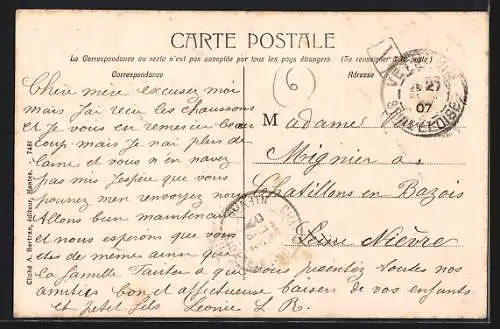 CARTE POSTALE
La Correspondance au recto n'est pas acceptée par tous les pays étrangers. (Se renseigner à la poste.)
Correspondance
Adresse
6
27
07
Chère mère excusez moi
mais J'ai recu les chaussons
et Je vous en remercie beau
coup mais Je n'ai plus de
laine et vous n'en navez
pas mis J'espère que vous
pourrez men renvoyez nous
Allons bien maintenant
et nous esperons que vous
etes de même ainsi que
la famille Tauter a qui vous presentez toutes nos
amities bon et affectueuse baiser de vos enfants
et petit fils Leonie L R.
M adame
Mignier a
Chatillons en Bazois
Nièvre
Cliché A. Bertrax, éditeur, Nantes. 7481